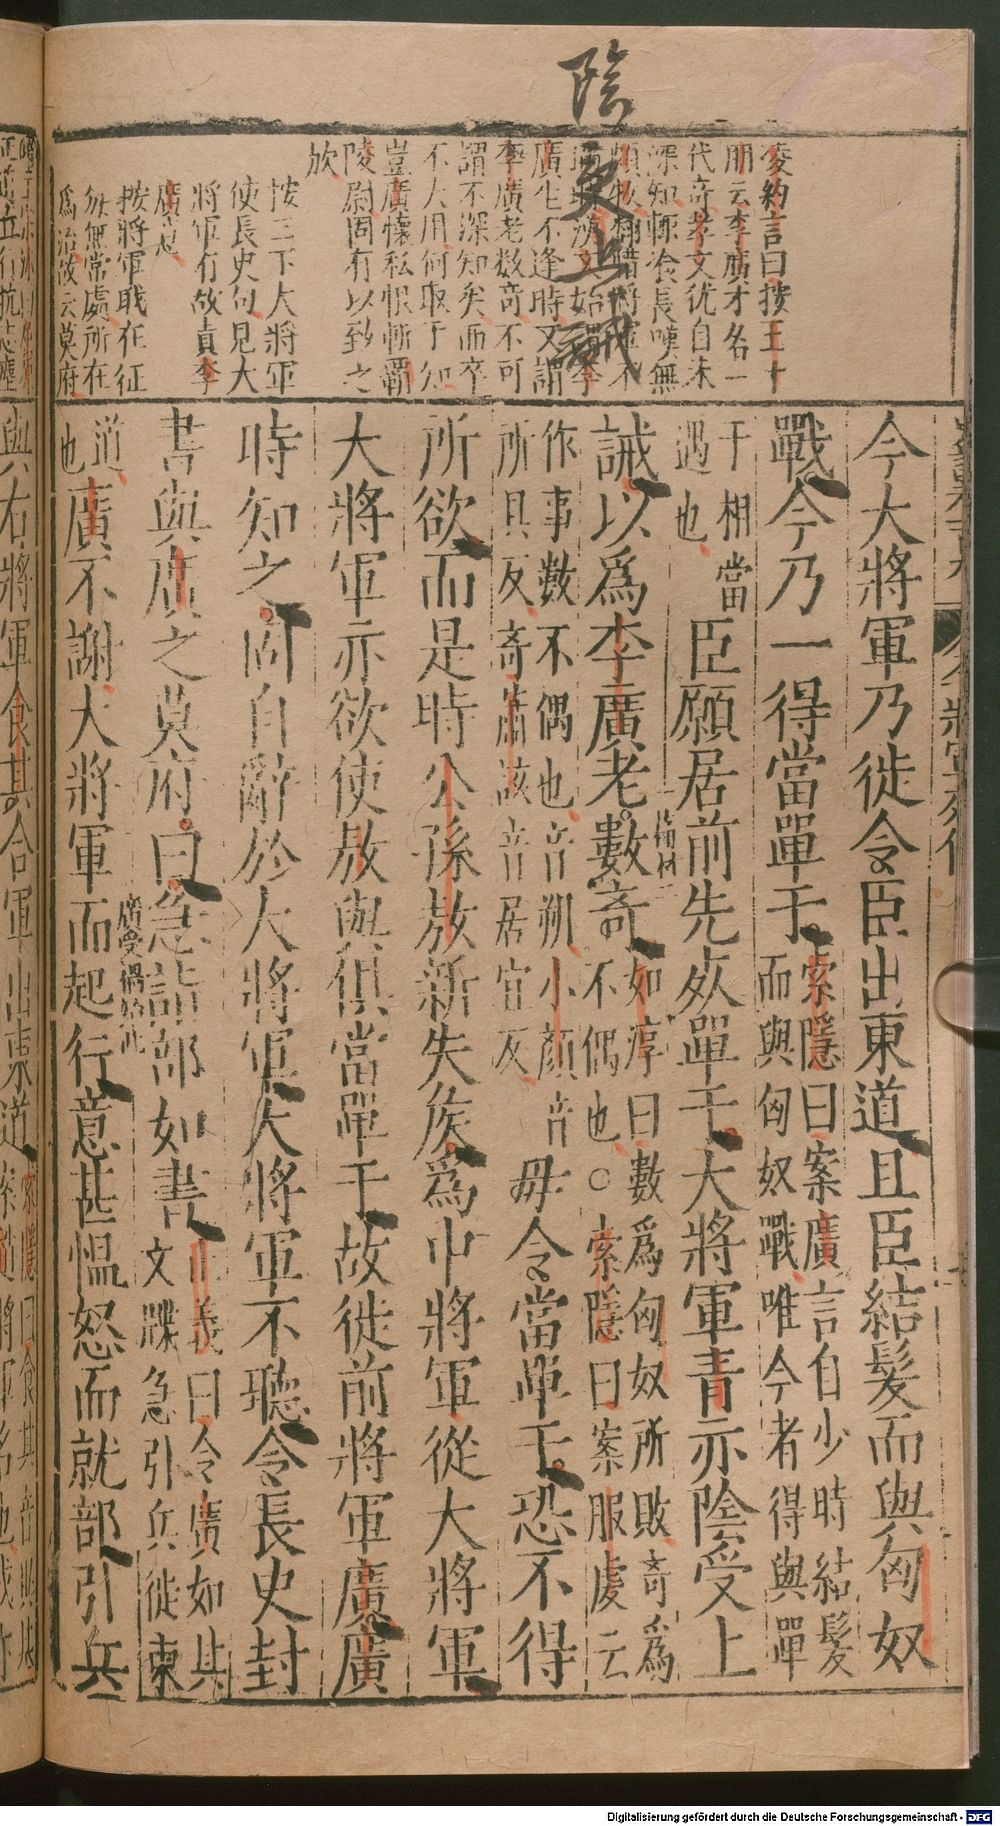 陰受上誡
凌約言曰按王十
朋云李廣才名一
代奇孝文犹自未
深知輒飡長嘆無
頗牧翻惜將軍不
廣生不逢時又謂
李廣老數奇不可
謂不深知矣而卒
不大用何取于知
豈廣懷私恨斬霸
陵尉固有以致之
欤
按三下大將軍
使長史句見大
將軍有故責李
廣意
按將軍戰在征
無常處所在
爲治故云莫府
今大將軍乃徙令臣出東道且臣結髮而與匈奴
戰今乃一得當單于索隱曰案廣言自少時結髮
而與匈奴戰唯今者得與單
于相當
遇也
臣願居前先死單于大將軍青亦陰受上
誡以爲李廣老數奇如淳曰數爲匈奴所敗奇爲
不偶也○索隱曰案服虔云
作事數不偶也音朔小顏音
所具反奇蕭該音居宜反
毋令當單于恐不得
所欲而是時公孫敖新失侯爲中將軍從大將軍
大將軍亦欲使敖與俱當單于故徙前將軍廣廣
時知之固自辭於大將軍大將軍不聽令長史封
書與廣之莫府曰急詣部如書正義曰令廣如其
文牒急引兵徙東
道
也
廣不謝大將軍而起行意甚慍怒而就部引兵
與右將軍食其合軍出東道
Digitalisierung gefördert durch die Deutsche Forschungsgemeinschaft - DFG